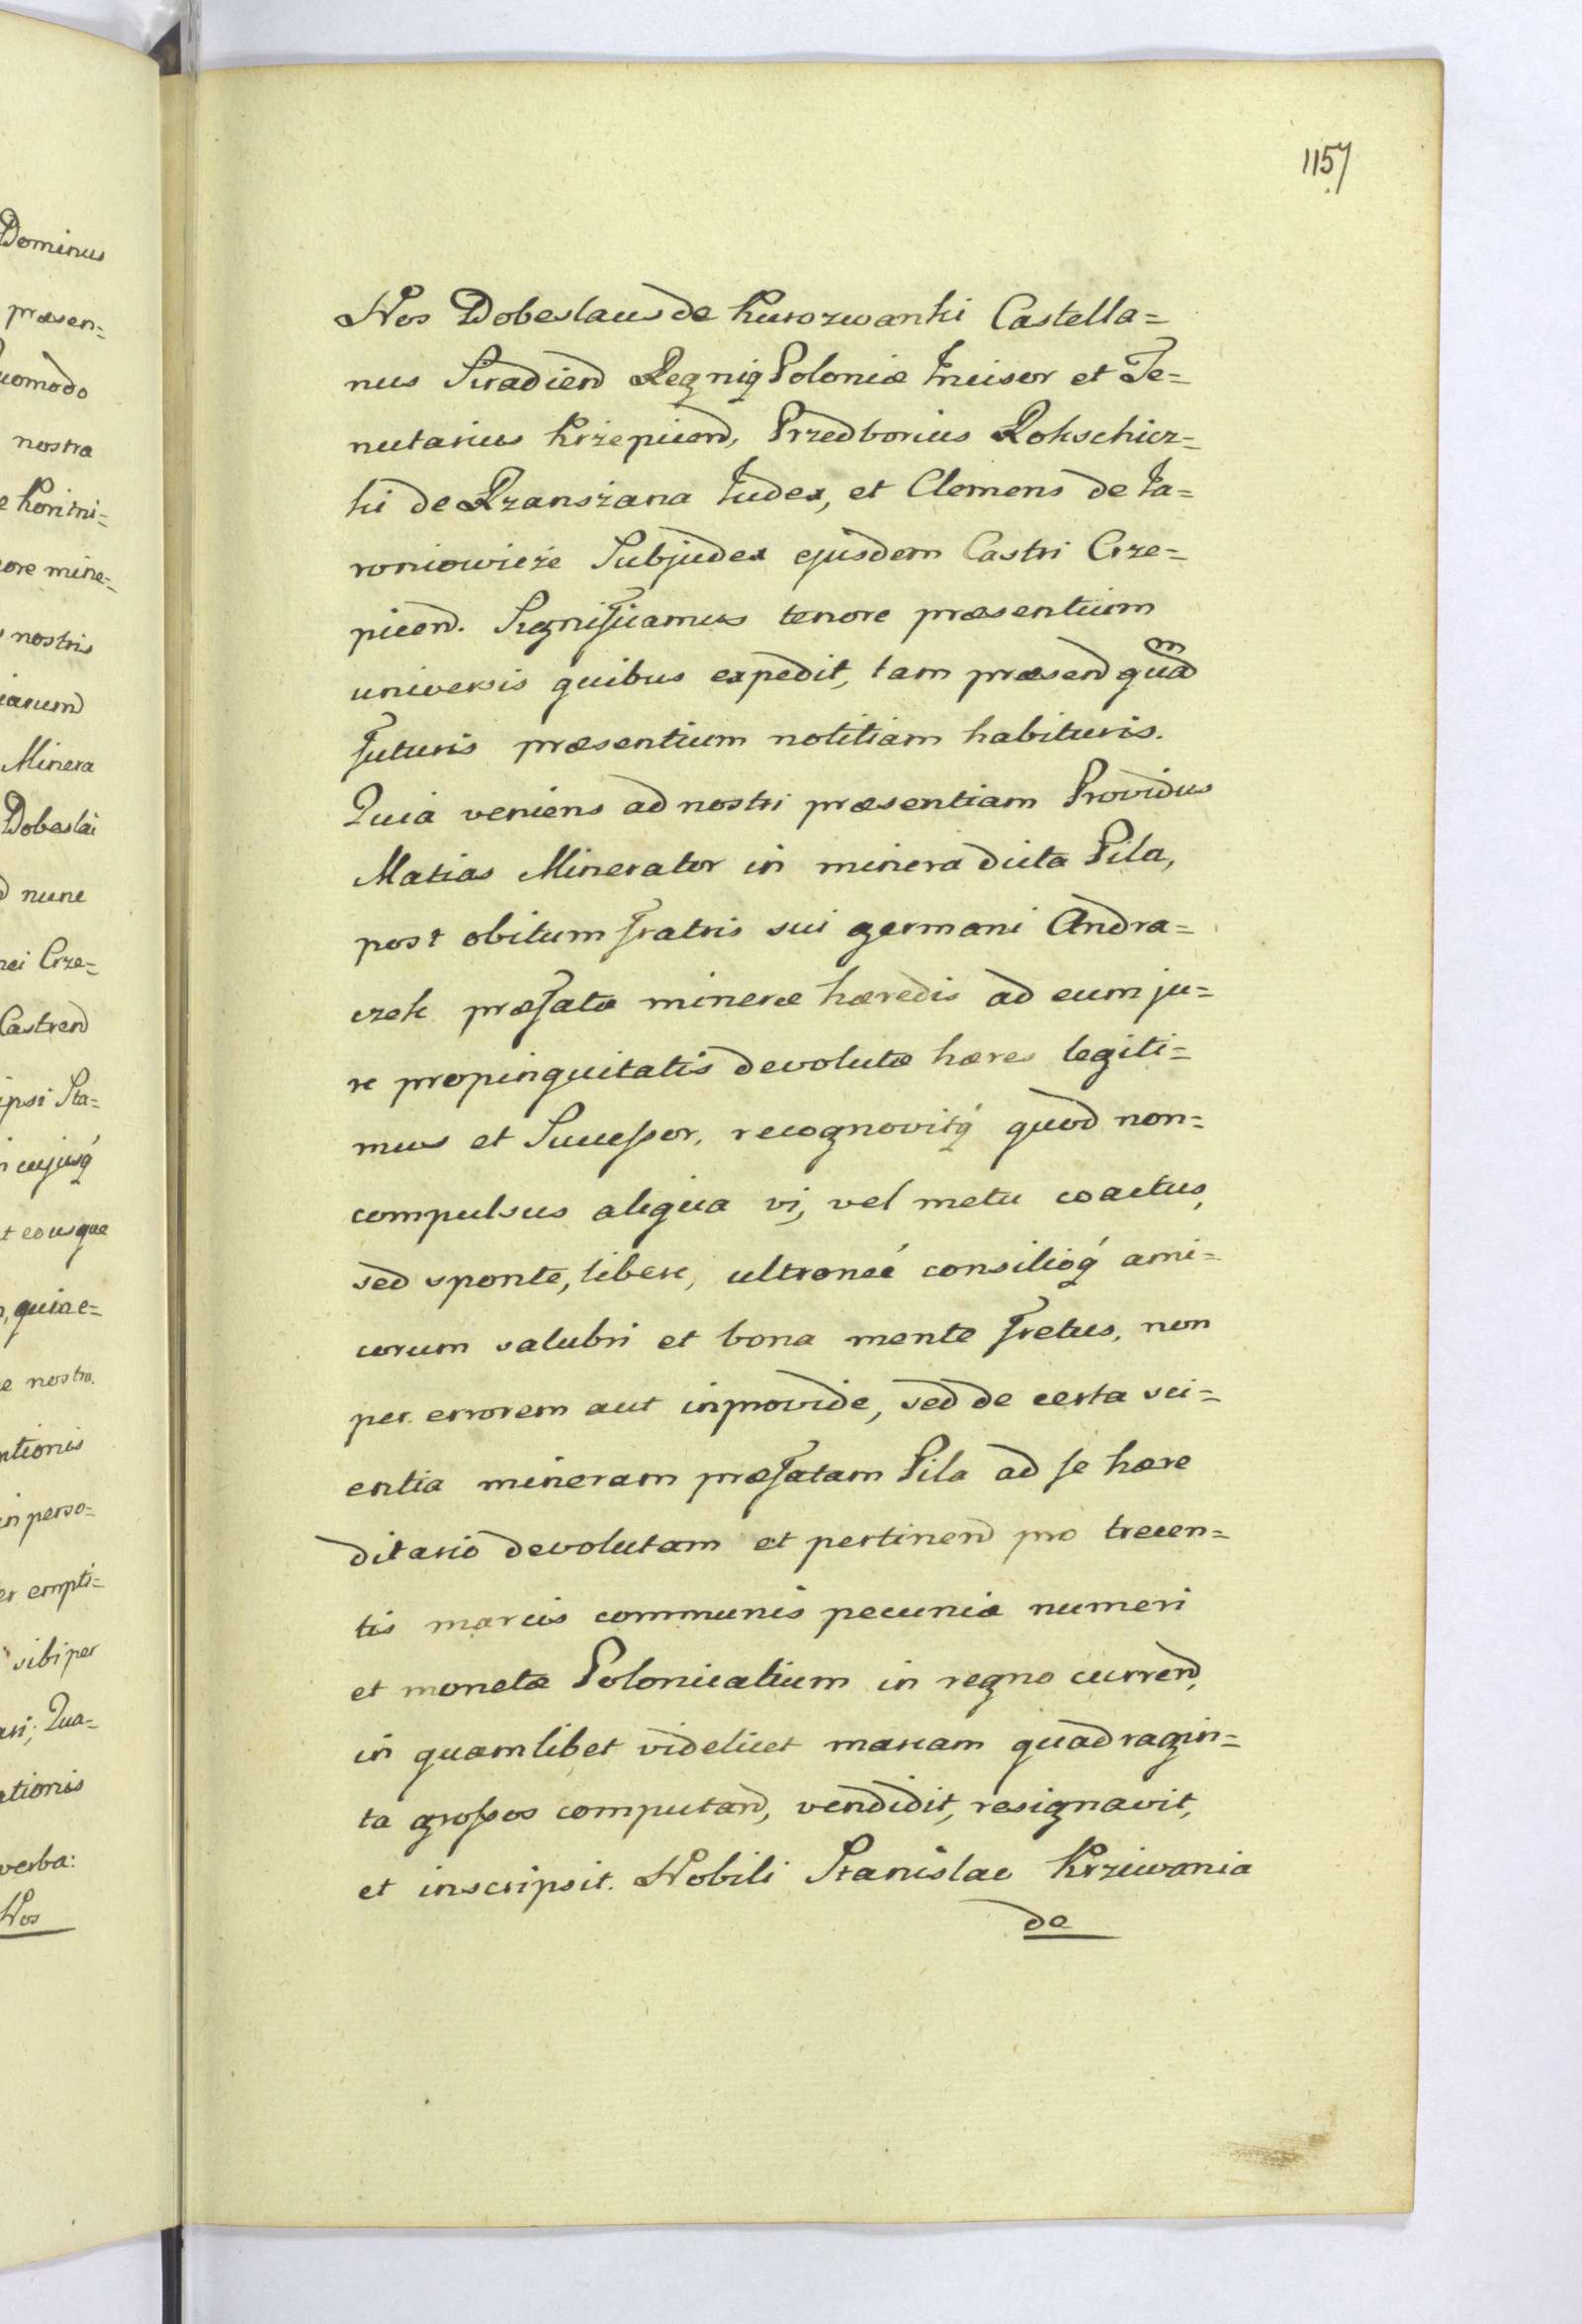 1157
Dominus
præsen=
uomodo
nostra
e Konini=
ore mine=
nostris
iarum
Minera
Dobeslai
nunc
nei Crze=
Castren
ipsi Sta=
cujusq́
t eousque
quia e=
e nostra.
ntionis
in perso=
er empti=
sibi per
ari; Qua=
ationis
verba:
Nos
Nos Dobeslaus de Kurozwanki Castella=
nus Siradien Regniq Poloniæ Incisor et Te=
nutarius Krżepicen, Przedborius Rokschicz=
ki de Rzansżana Judex, et Clemens de Ja=
roniowicże Subjudex ejusdem Castri Crze=
picen. Significamus tenore præsentium
universis quibus expedit, tam præsen quam
futuris præsentium notitiam habituris.
Quia veniens ad nostri præsentiam Providus
Matias Minerator in minera dicta Pila,
post obitum fratris sui germani Andra=
czek præfatæ mineræ hæredis ad eum ju=
re propinquitatis devolutæ hæres legiti=
mus et Successor, recognovitq́ quod non=
compulsus aliqua vi, vel metu coactus,
sed sponte, libere, ultroneé consilioq́ ami=
corum salubri et bona mente fretus, non
per errorem aut inprovide, sed de certa sci=
entia mineram præfatam Pila ad se hære
ditarió devolutam et pertinen pro trecen=
tis marcis communis pecuniæ numeri
et monetæ Polonicalium in regno curren,
in quamlibet videlicet marcam quadragin=
ta grossos computan, vendidit, resignavit,
et inscripsit. Nobili Stanislao Krziwania
de